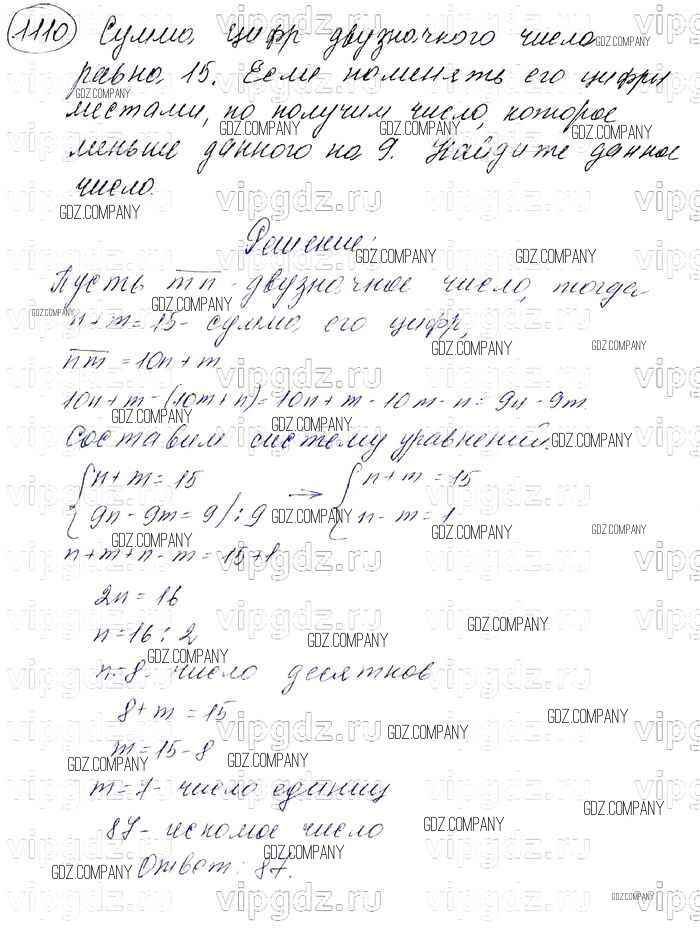 1110 Сумма цифр двузначного числа
равна 15. Если поменять его цифры
местами, то получим число, которое
меньше данного на 9. Найдите данное
число.
Решение:
Пусть mn - двузначное число, тогда
n+m=15 - сумма его цифр,
nm = 10n+m
10n+m-(10m+n)=10n+m-10m-n=9n-9m
Составим систему уравнений.
{ n+m=15 → { n+m=15
{ 9n-9m=9 /:9 { n-m=1
n+m+n-m=15+1
2n=16
n=16:2
n=8 - число десятков
8+m=15
m=15-8
m=7 - число единиц
87 - искомое число
Ответ: 87.
vipgdz.ru
GDZ.COMPANY